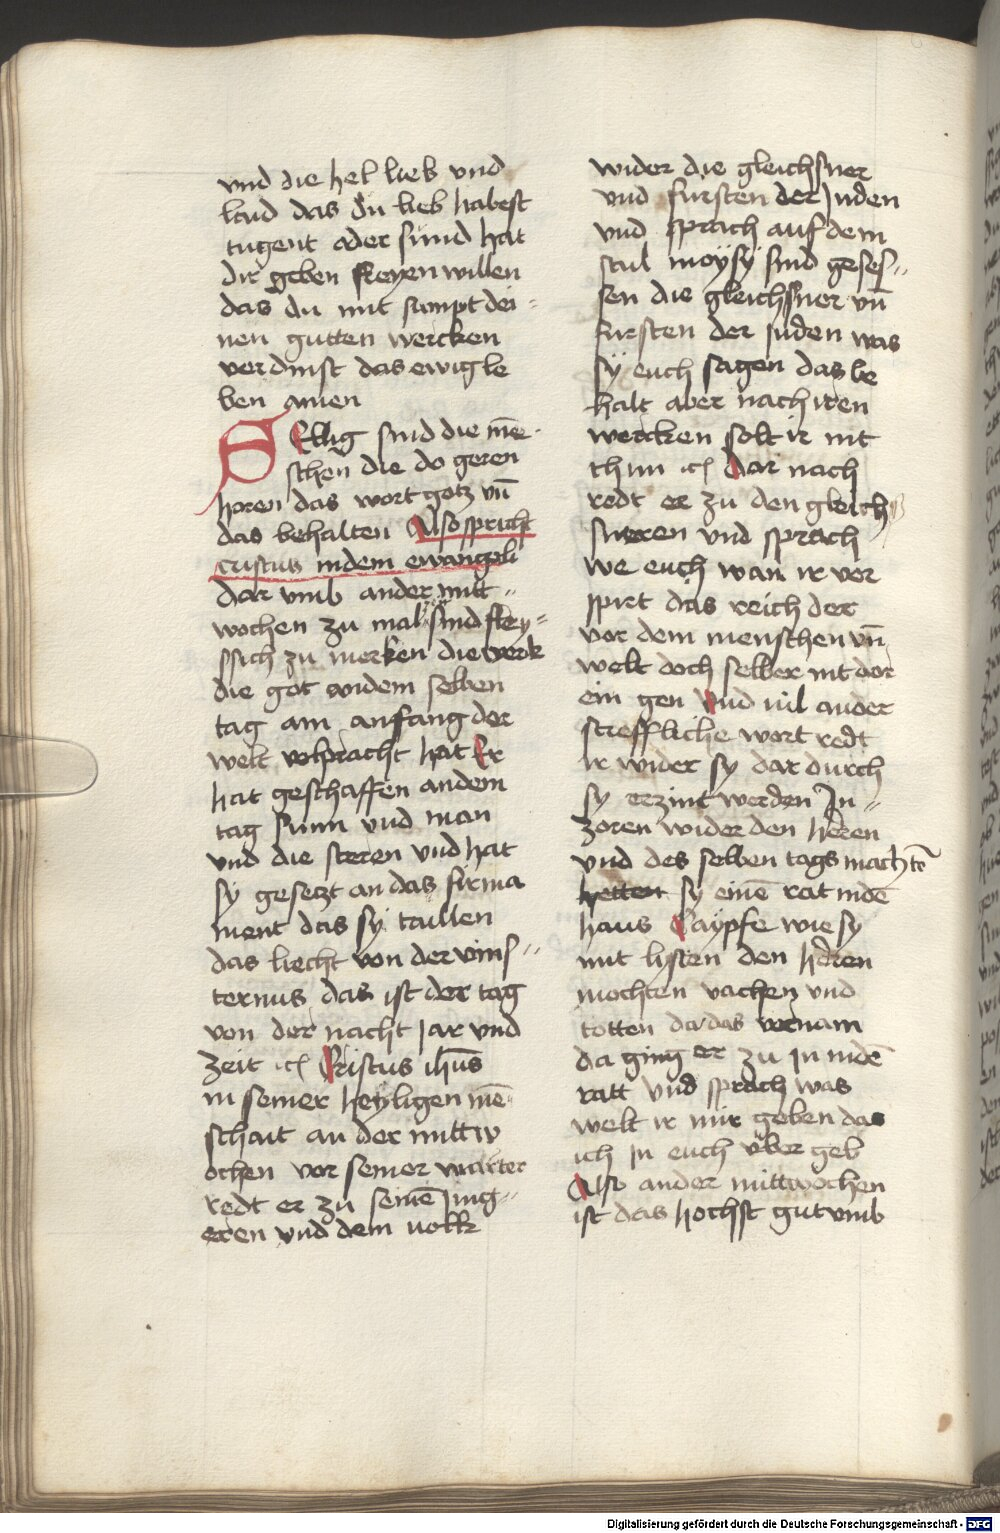 und die hel lieb und
laid das du lieb habest
tugent oder sünd hat
dir geben freyen willen
das du mit sampt dei-
nen gutten wercken
verdinst das ewig le
ben amen
SEllig sind die mē
schen die do geren
horen das wort gotz vn̄
das behalten Also spricht
cristus in dem ewangeli
Dar vmb an der mitt-
wochen zu mal sind fley-
ssich zu merken die werk
die got an dem selben
tag am anfang der
welt volpracht hat Er
hat geschaffen an dem
tag sunn und man
und die steren und hat
sy gesetzt an das firma
ment das sy taillen
das liecht von der vins-
ternus das ist der tag
von der nacht jar und
zeit ic Cristus ihūs
in seiner heyligen mē
schait an der mittw
ochen vor seiner marter
redt er zu seinē jing-
eren und dem volk
wider die gleichsner
und fursten der Juden
und sprach auf dem
stul moysy sind geses-
sen die gleichsner vn̄
fursten der juden was
sy euch sagen das be
halt aber nach iren
wercken solt ir nit
thun ic Dar nach
redt er zu den gleich
sneren und sprach
we euch wan ir vor
spirt das reich der
vor dem menschen vn̄
welt doch selber nit dor
ein gen Und vil ander
streffliche wort redt
ir wider sy dar durch
sy erzint werden In-
zoren wider den heren
und des selben tags machtē
hetten sy einē rat in dē
haus Caypfe wie sy
mit listen den heren
mochten vachen und
totten da das vernam
da ging er zu in in dē
ratt und sprach was
welt ir mir geben das
ich in euch über geb
Also an der mittwochen
ist das hochst gut vmb